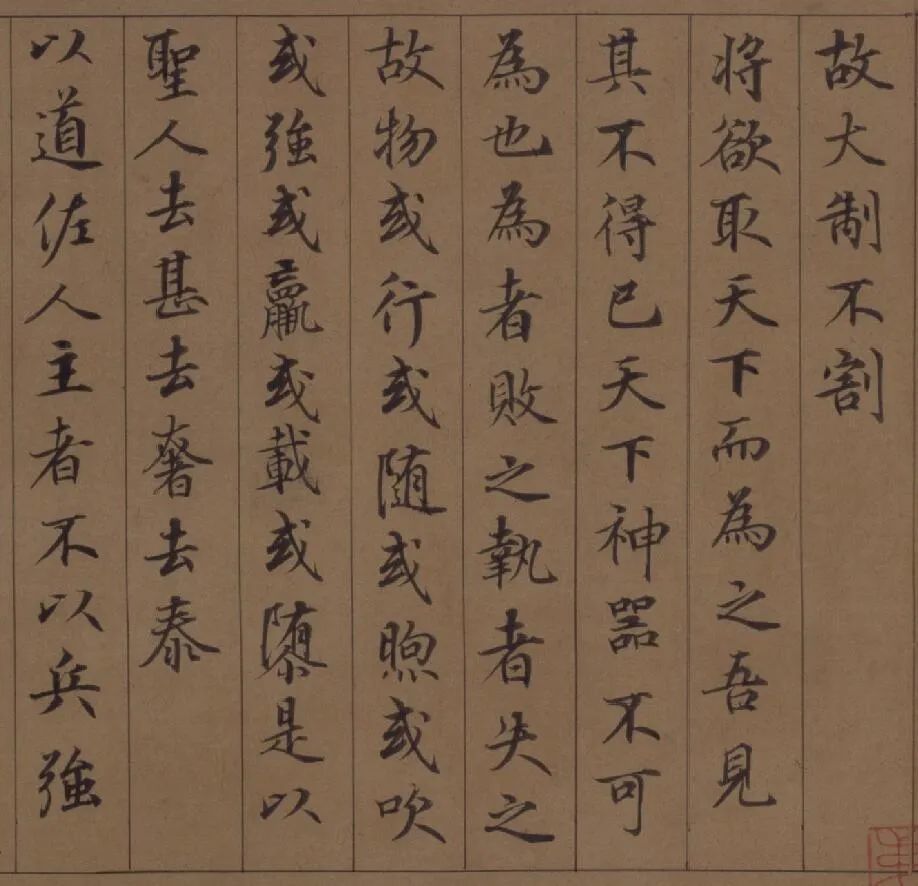 故大制不割
將欲取天下而為之吾見
其不得已天下神器不可
為也為者敗之執者失之
故物或行或随或煦或吹
或強或羸或載或隳是以
聖人去甚去奢去泰
以道佐人主者不以兵強